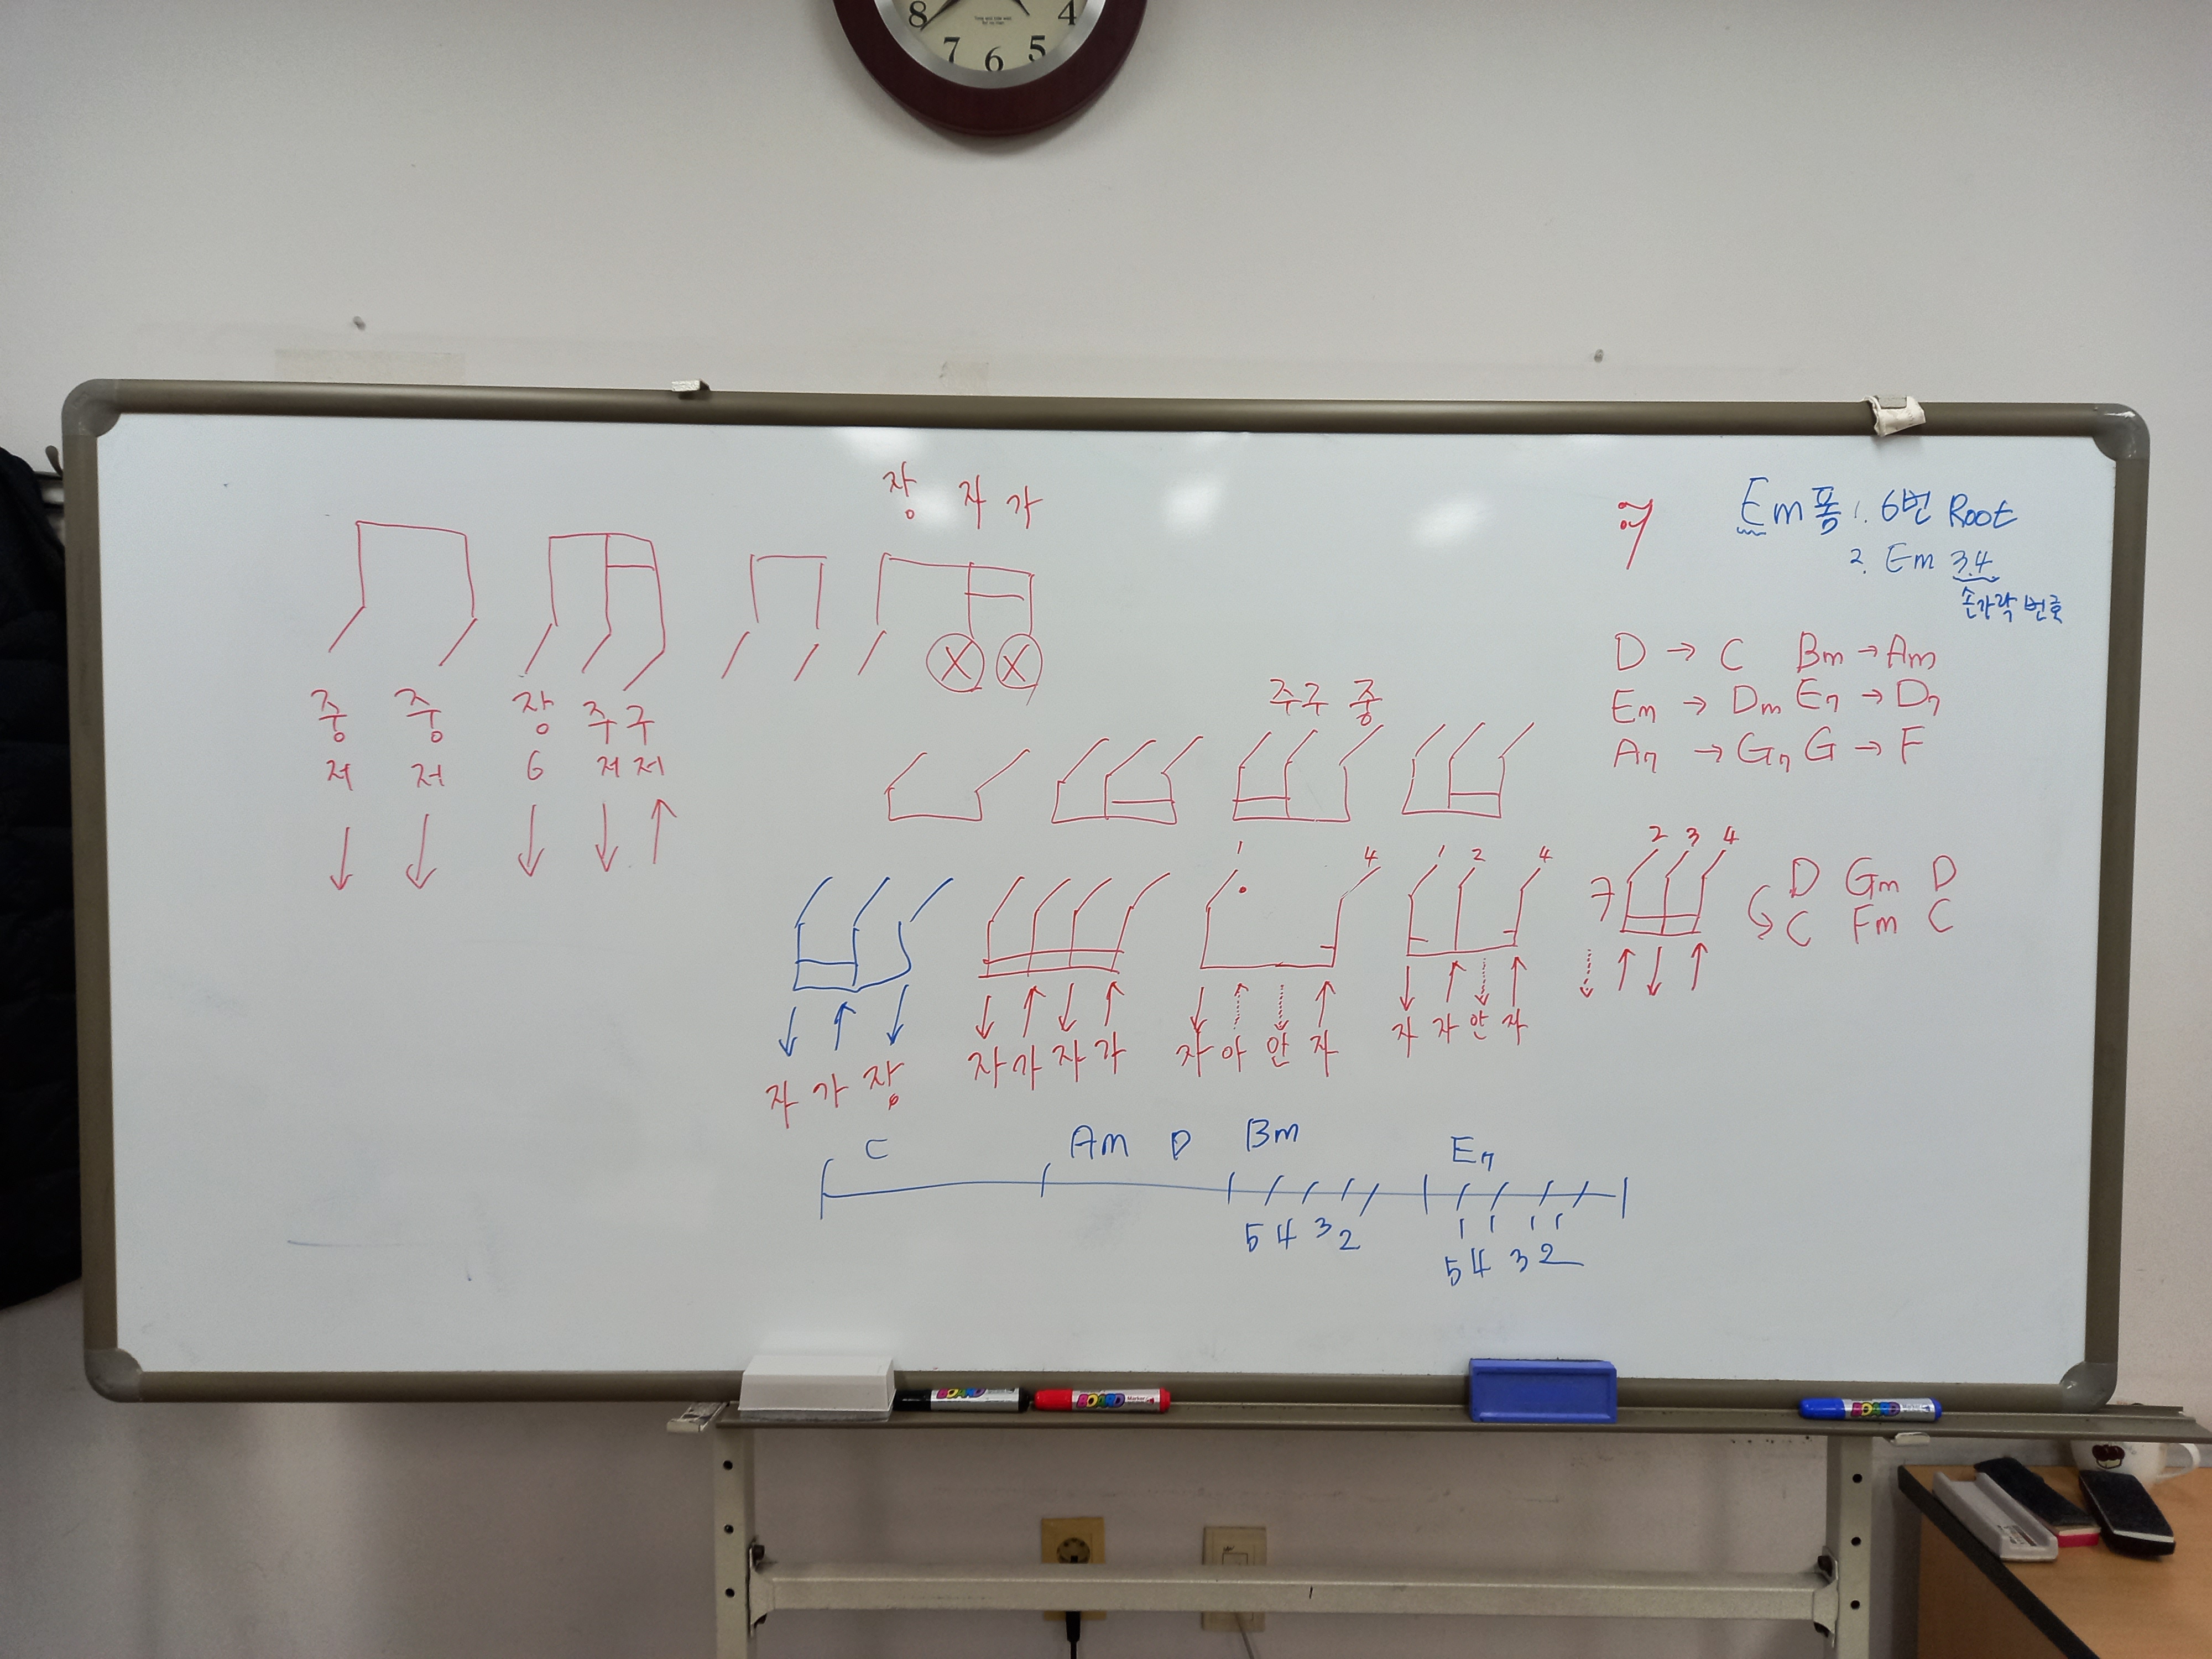 8 7 6 5 4
장 자 가
Em폼 1. 6번 Root
2. Em 3.4
손가락 번호
D → C Bm → Am
Em → Dm E7 → D7
A7 → G7 G → F
중 중 장 주 구
저 저 6 저 저
주구 중
1 4 1 2 4 2 3 4
D Gm D
C Fm C
자 가 장 자 가 자 가 자 아 안 자 자 자 안 자
C Am D Bm E7
5 4 3 2
5 4 3 2
BOARD BOARD Marker BOARD